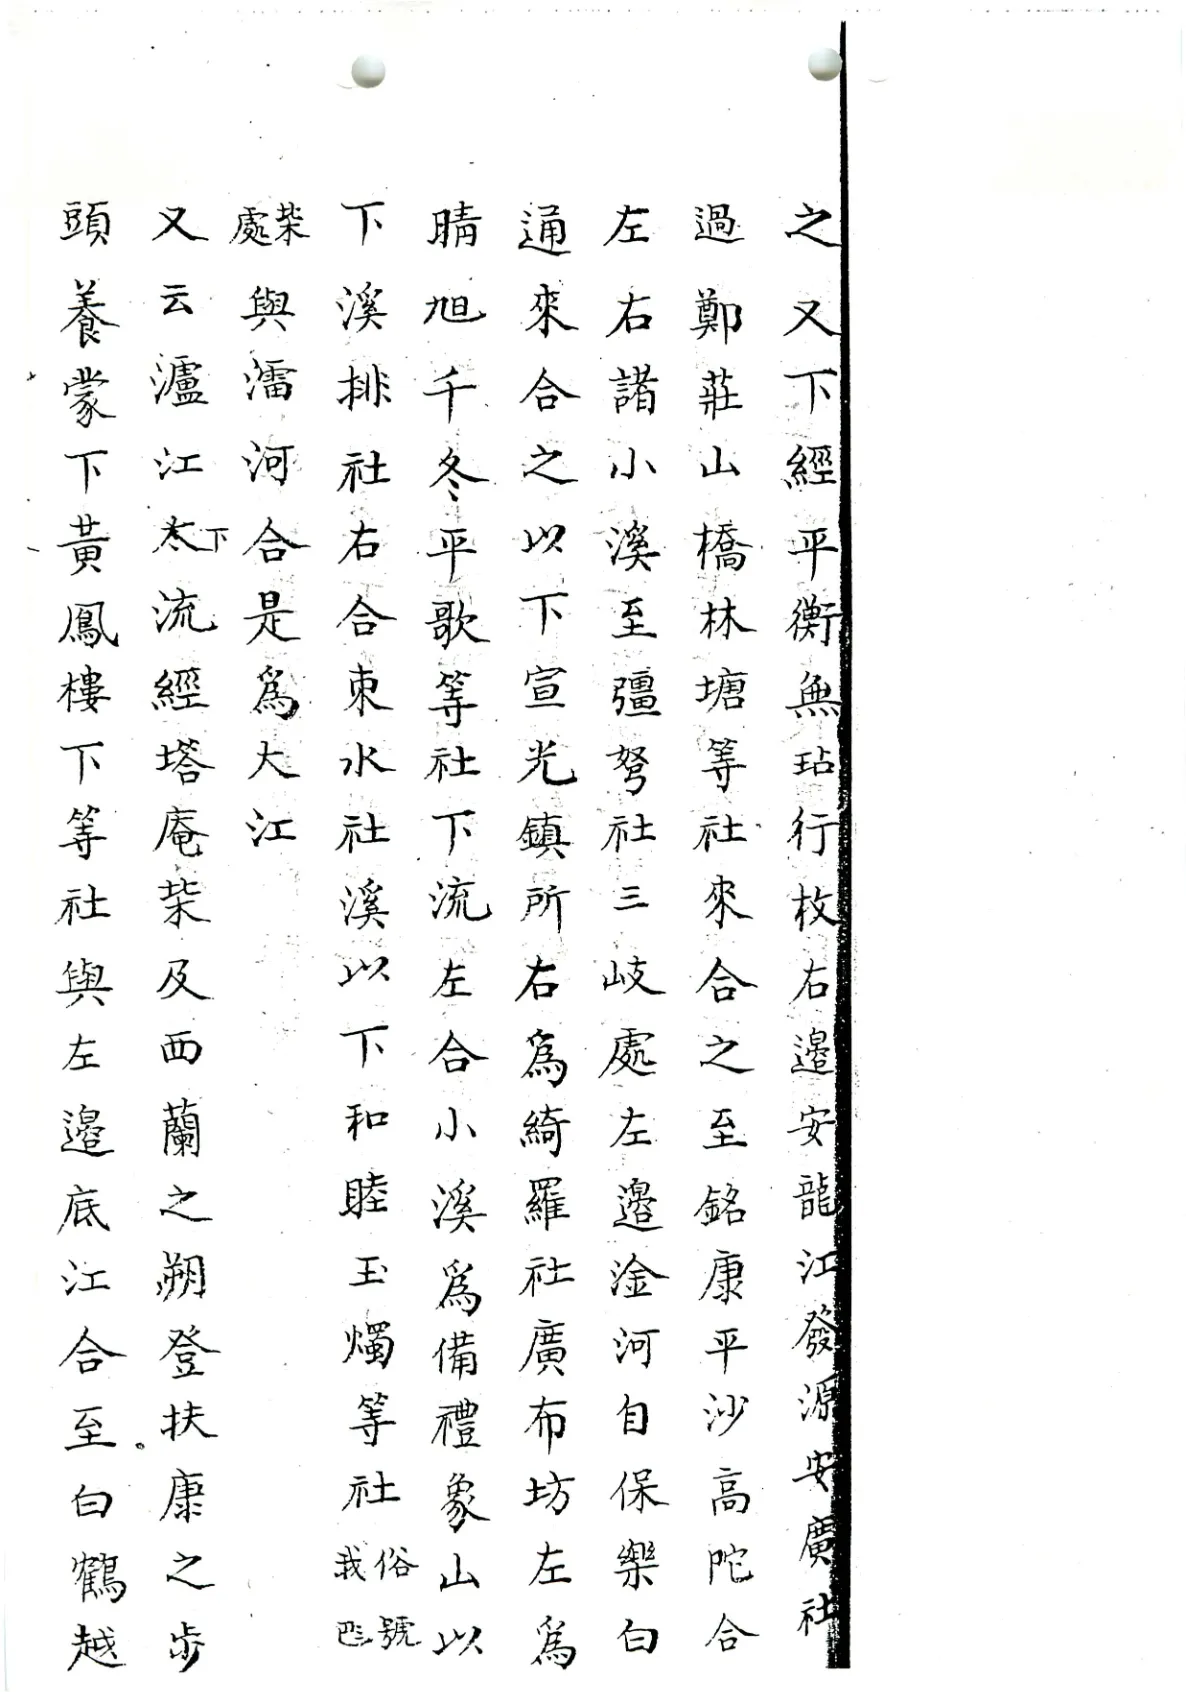 之又下經平衡無玷行枚右邉安龍江發源安廣社
過鄭莊山橋林塘等社來合之至銘康平沙高陀合
左右諸小溪至彊弩社三岐處左邉淦河自保樂白
通來合之以下宣光鎮所右為綺羅社廣布坊左為
晴旭千冬平歌等社下流左合小溪為備禮象山以
下溪排社右合東水社溪以下和睦玉燭等社俗號
處柴與濡河合是為大江
又云瀘江太下流經塔庵柴及西蘭之朔登扶康之步
頭養蒙下黃鳳樓下等社與左邉底江合至白鶴越